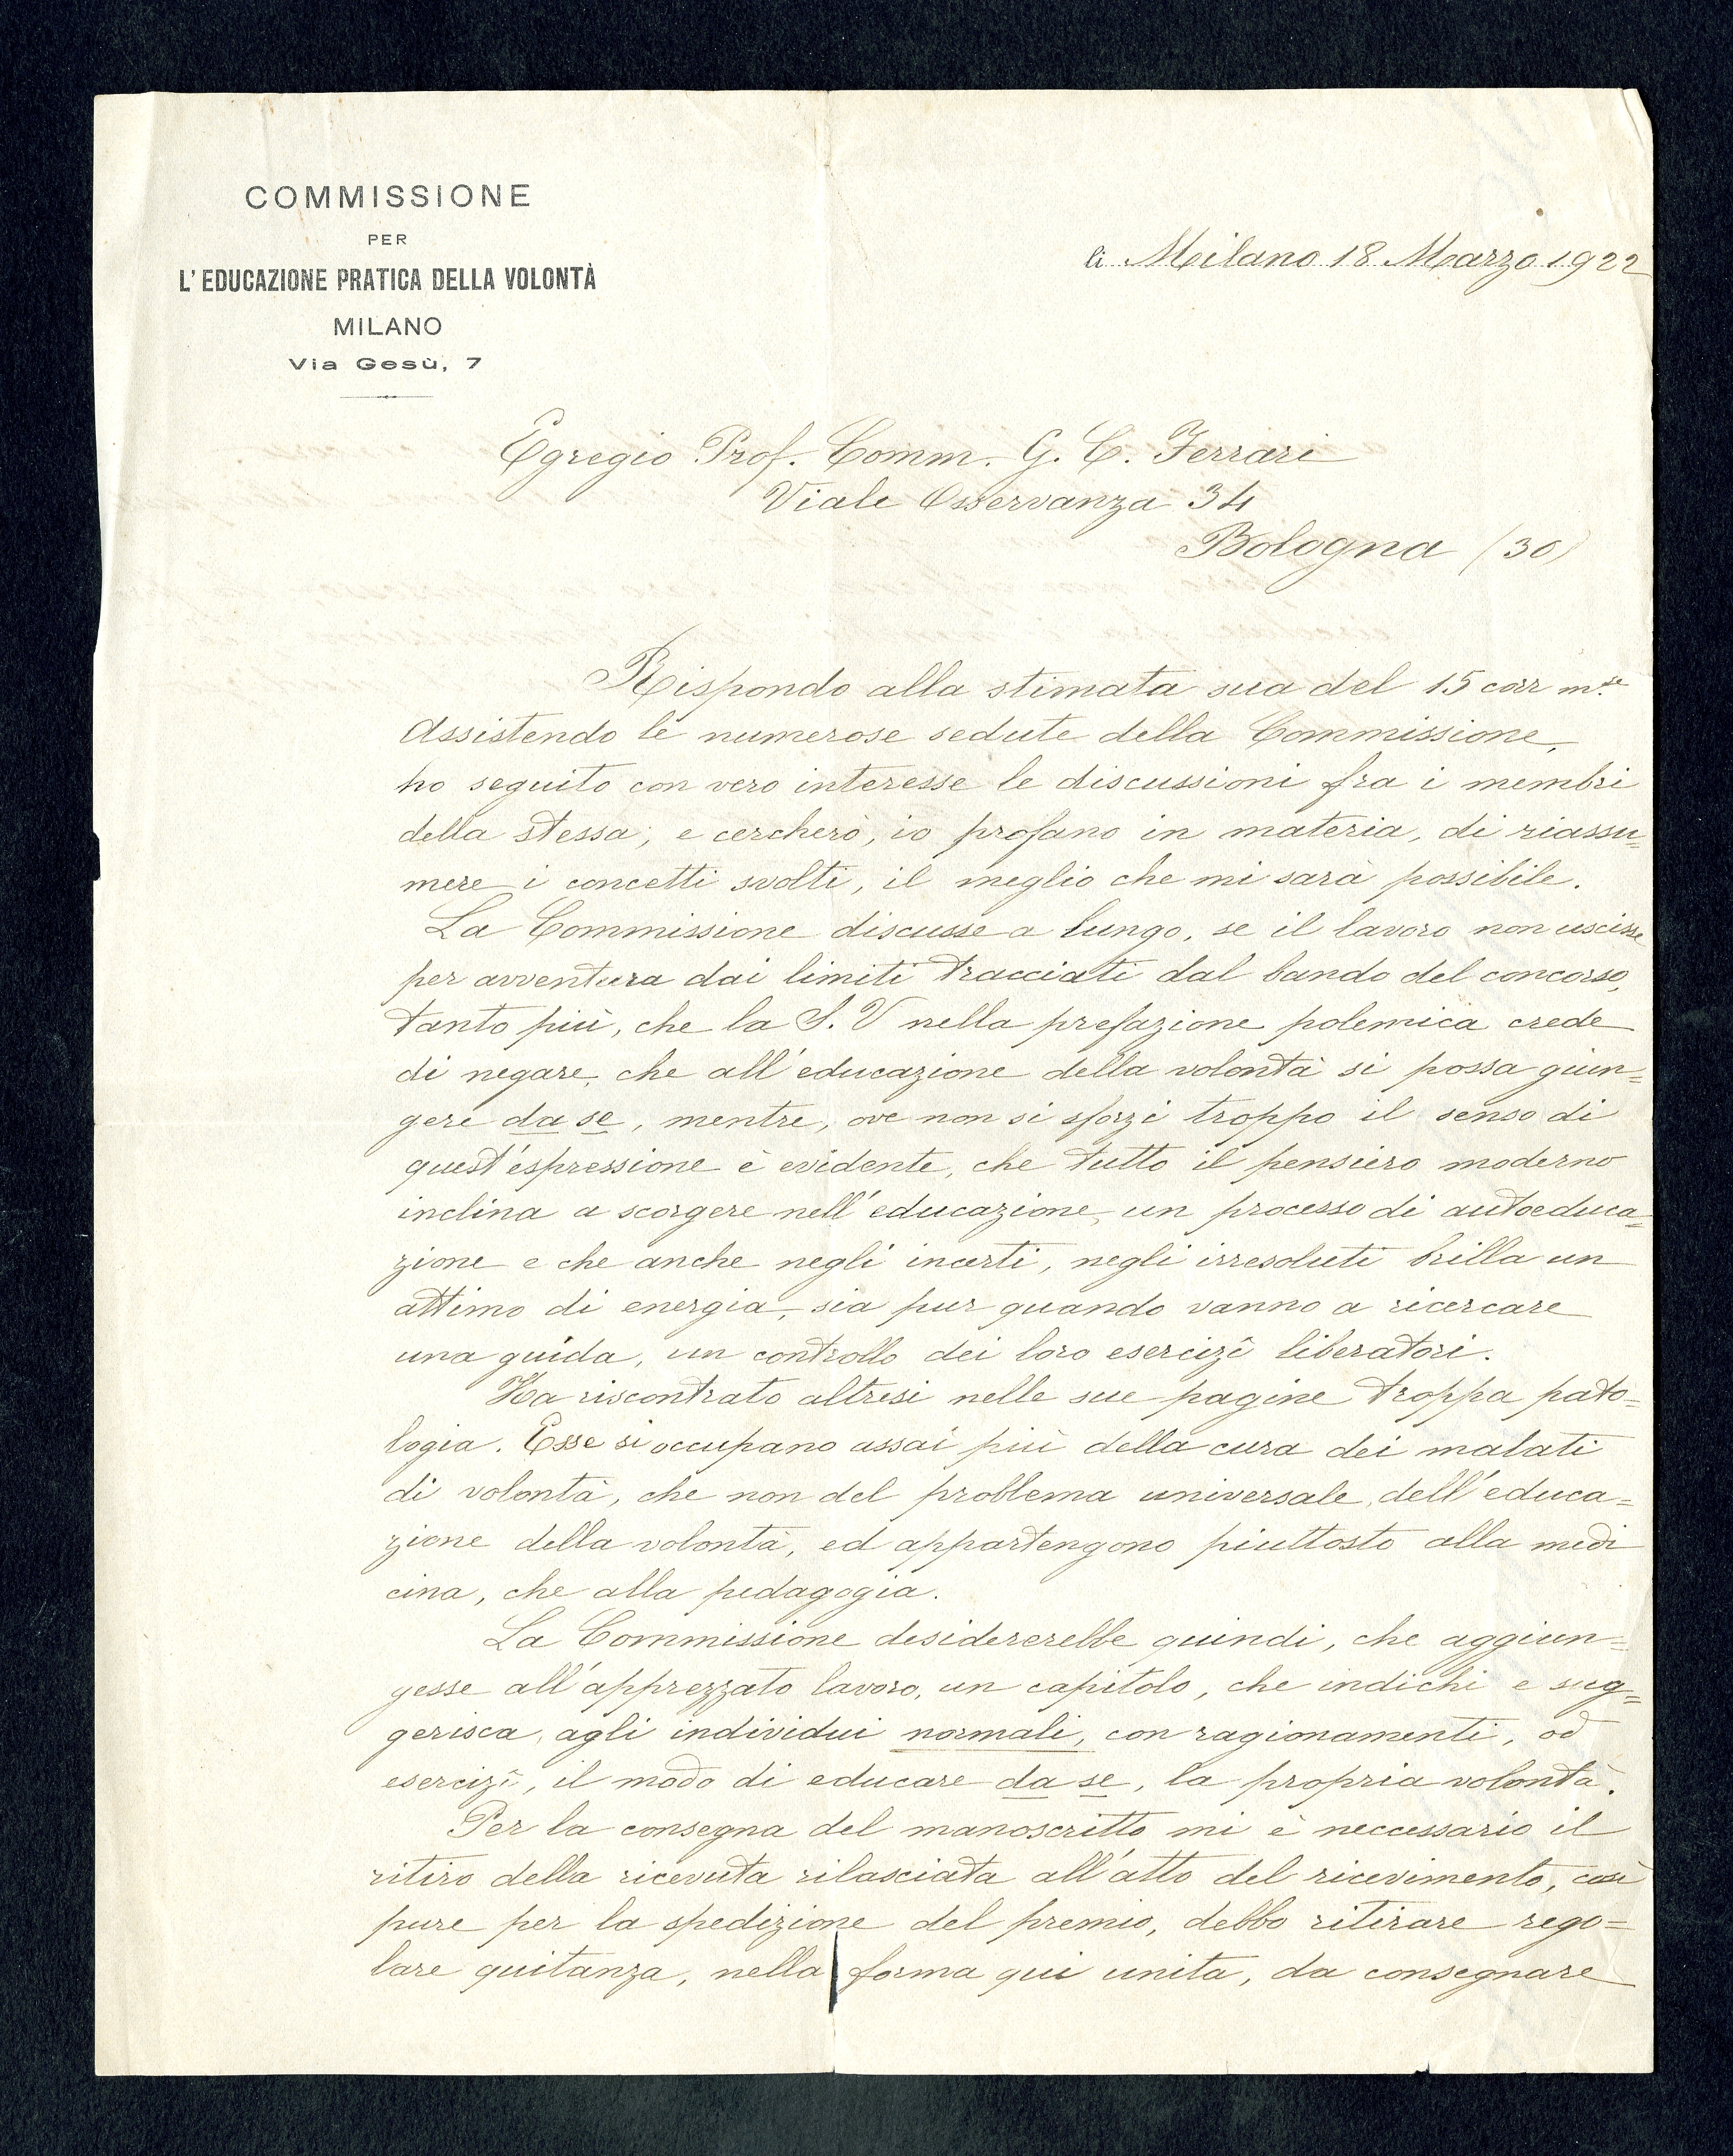 COMMISSIONE
PER
L'EDUCAZIONE PRATICA DELLA VOLONTÀ
MILANO
Via Gesù, 7
li Milano 18 Marzo 1922
Egregio Prof. Comm. G. C. Ferrari
Viale Osservanza 34
Bologna (30)
Rispondo alla stimata sua del 15 corr m.se
Assistendo le numerose sedute della Commissione,
ho seguito con vero interesse le discussioni fra i membri
della stessa, e cercherò, io profano in materia, di riassu=
mere i concetti svolti, il meglio che mi sarà possibile.
La Commissione discusse a lungo, se il lavoro non uscisse
per avventura dai limiti tracciati dal bando del concorso,
tanto più, che la S. V nella prefazione polemica crede
di negare, che all'educazione della volontà si possa giun=
gere da se, mentre, ove non si sforzi troppo il senso di
quest'espressione è evidente, che tutto il pensiero moderno
inclina a scorgere nell'educazione, un processo di autoeduca=
zione e che anche negli incerti, negli irresoluti brilla un
attimo di energia, sia pur quando vanno a ricercare
una guida, un controllo dei loro esercizî liberatori.
Ha riscontrato altresi nelle sue pagine troppa pato=
logia. Esse si occupano assai più della cura dei malati
di volontà, che non del problema universale, dell'educa=
zione della volontà, ed appartengono piuttosto alla medi
cina, che alla pedagogia.
La Commissione desidererebbe quindi, che aggiun=
gesse all'apprezzato lavoro, un capitolo, che indichi e sug=
gerisca, agli individui normali, con ragionamenti, od
esercizî, il modo di educare da se, la propria volontà.
Per la consegna del manoscritto mi è neccessario il
ritiro della ricevuta rilasciata all'atto del ricevimento, così
pure per la spedizione del premio, debbo ritirare rego=
lare quitanza, nella forma qui unita, da consegnare